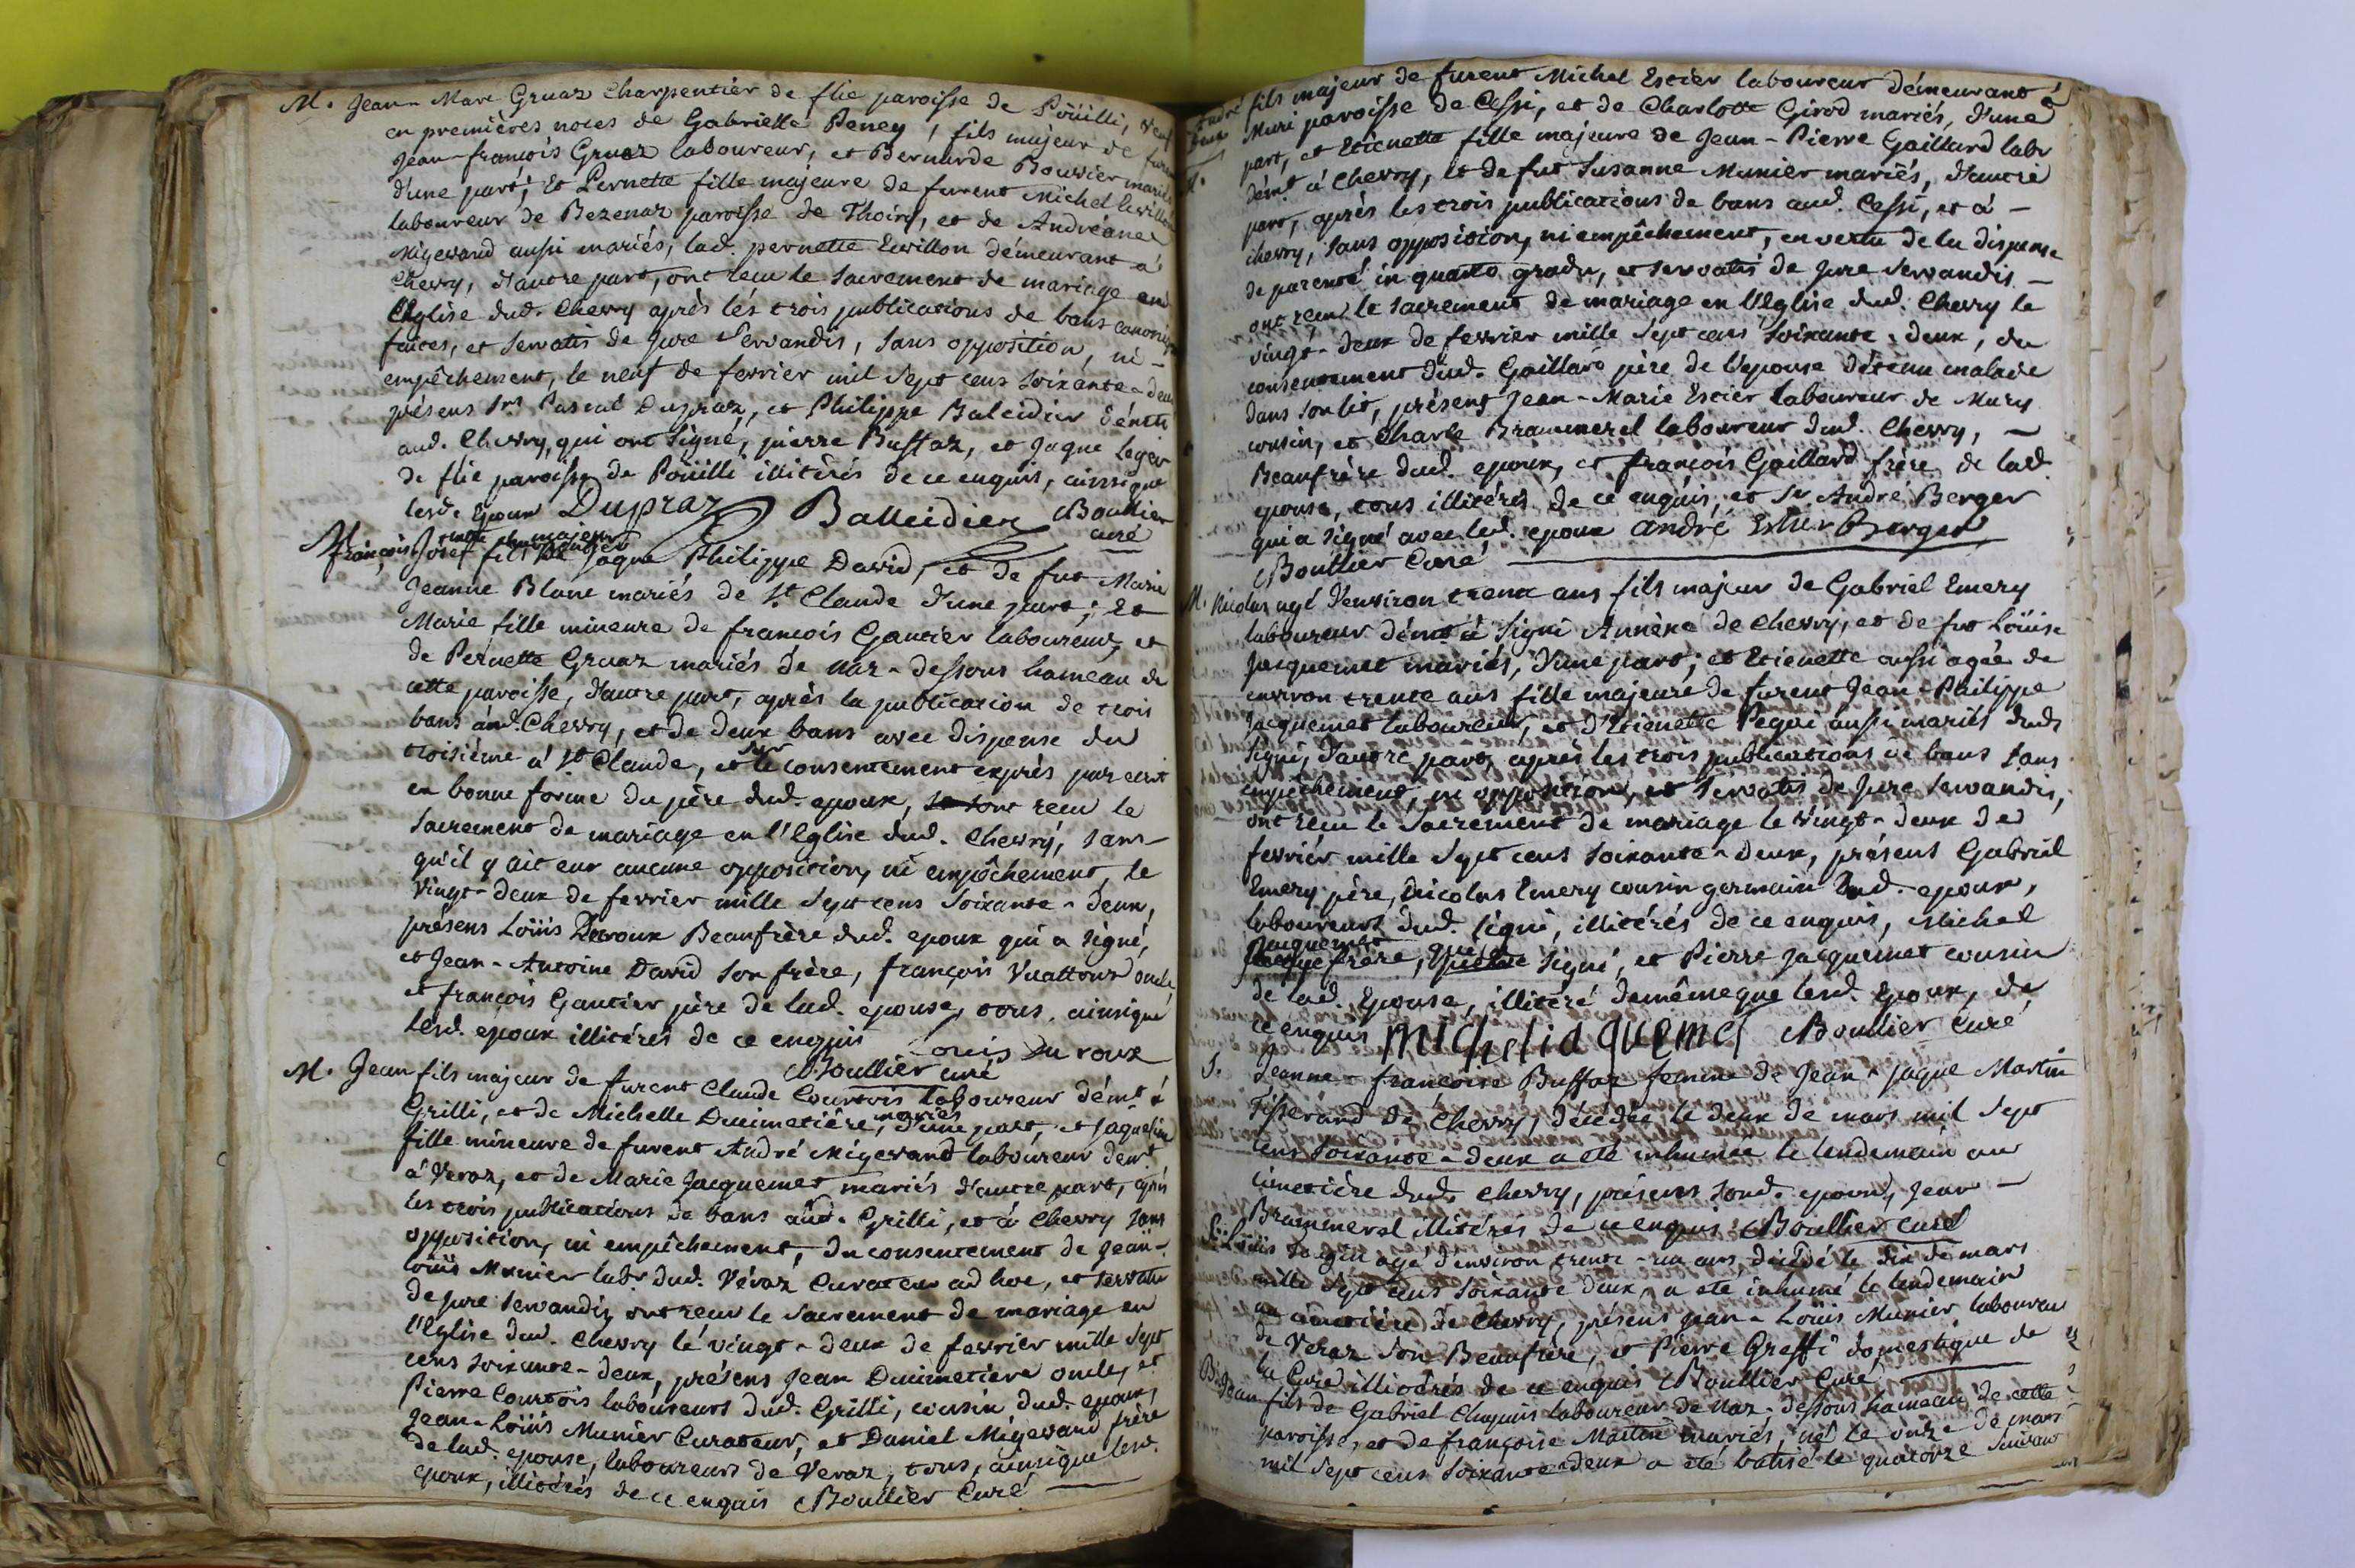 M. Jean-Marc Gruaz Charpentier de flie paroisse de Poüilli, veuf
en premières noces de Gabrielle Peney, fils majeur de furent
Jean-françois Gruaz laboureur, et Bernarde Bouvier mariés
d'une part; Et Pernette fille majeure de furent Michel levillon
laboureur de Bezenaz paroisse de Thoiry, et de Andréane
Migevand aussi mariés, lad. pernette Levillon démeurant à
Chevry, d'autre part, ont reçu le Sacrement de mariage en
l'Eglise dud. Chevry après lés trois publications de bans
faites, et servatis de jure Servandis, sans opposition, ni -
empêchement, le neuf de fevrier mil Sept cens soixante-deux
présens Srs Pascal Dupraz, et Philippe Baleidier démts
aud. Chevry, qui ont signé, pierre Buffaz, et Jaque leger
de flie paroisse de Poüilli illitérés de ce enquis, ainsique
lesd. Epoux Dupraz Balleidier Boullier
curé
M. françois Josef fils majeur
de Jaque Philippe David, et de fut Marie
Jeanne Blanc mariés de St Claude d'une part; Et
Marie fille mineure de francois Gautier laboureur, et
de Pernette Gruaz mariés de Naz-dessous hameau de
cette paroisse, d'autre part, après la publication de trois
bans aud. Chevry, et de deux bans avec dispense du
troisième à St Claude, et sur le consentement exprès par ecrit
en bonne forme du père dud. epoux, ont recu le
Sacrement de mariage en l'Eglise dud. Chevry, sans -
qu'il y ait eut aucune opposition, ni empêchement, le
vingt-deux de fevrier mille Sept cens soixante-deux,
présens Loüis Duroux Beaufrère dud. epoux qui a signé,
et Jean-Antoine David son frère, françois Vuattoux oncle
et françois Gautier père de lad. epouse, tous, ainsique
lesd. epoux illitérés de ce enquis Louis Du roux
Boullier curé
M. Jean fils majeur de furent Claude Courtois laboureur démt à
Grilli, et de Michelle Ducimetière, mariés d'une part, et Jaqueline
fille mineure de furent André Migevand laboureur demt
à Veraz, et de Marie Jacquemet mariés d'autre part, après
les trois publications de bans aud. Grilli, et à Chevry sans
opposition, ni empêchement, du consentement de Jean-
Loüis Munier labr dud. Véraz Curateur ad hoc, et servatis
de jure servandis, ont recu le Sacrement de mariage en
l'Eglise dud. Chevry lé vingt-deux de fevrier mille Sept
cens soixante-deux, présens Jean Ducimetière oncle, et
Pierre Courtois laboureurs dud. Grilli, cousin dud. epoux,
Jean-Loüis Munier Curateur, et Daniel Migevand frère
de lad. epouse, laboureurs de Veraz, tous, ainsique lesd.
epoux, illitérés de ce enquis Boullier Curé
André fils majeur de furent Michel Estier laboureur démeurant à
Muri paroisse de Cessi, et de Charlotte Girod mariés, d'une
part, et Etienette fille majeure de Jean-Pierre Gaillard labr
démt à Chevry, et de fut Susanne Munier mariés, d'autre
part, après les trois publications de bans aud. Cessi, et à -
chevry, sans opposition, ni empêchement, en vertu de la dispense
de parenté in quarto gradu, et servatis de jure servandis -
ont reçu le sacrement de mariage en l'Eglise dud. Chevry le
vingt-deux de fevrier mille Sept cens soixante-deux, du
consentement dud. Gaillard père de l'epouse détenu malade
dans son lit, présens Jean-Marie Estier laboureur de Mury
cousin, et Charle Brammerel laboureur dud. Chevry, -
Beaufrère dud. epoux, et françois Gaillard frère de lad.
epouse, tous illitérés de ce enquis, et Sr André Berger
qui a signé avec led. epoux andré Estier Berger
Boullier Curé
M. Nicolas agé d'environ trente ans fils majeur de Gabriel Emery
laboureur démt à Signi Annèxe de Chevry, et de fut Loüise
Jacquemet mariés, d'une part; et Etienette aussi agée de
environ trente ans fille majeure de furent Jean-Philippe
Jacquemet laboureur, et d'Etienette Pequi aussi mariés dud.
Signi, d'autre part, après les trois publications de bans sans
empêchement, ni opposition, et servatis de jure servandis,
ont reçu le Sacrement de mariage le vingt-deux de
fevrier mille Sept cens soixante-deux, présens Gabriel
Emery père, Nicolas Emery cousin germain dud. epoux,
laboureurs dud. signi, illitérés de ce enquis, Michel
Jacquemet
frère, qui a signé, et Pierre Jacquemet cousin
de lad. Epouse, illitéré demêmeque lesd. Epoux, de
ce enquis michel ia quemet Boullier Curé
S. Jeanne-françoise Buffaz femme de Jean-Jaque Martin
Tisserand de Chevry, décédée le deux de mars mil Sept
cens soixante-deux a eté inhumée le lendemain au
cimetière dud. Chevry, présens sond. epoux, Jean -
Brammerel illitérés de ce enquis Boullier Curé
S. Loüis agé d'environ trente-un ans, décédé le dix de mars
mille Sept cens soixante deux, a eté inhumé le lendemain
au cimetière de Chevry, présens jean-Loüis Munier laboureur
de Veraz son Beaufrère, et Pierre Greffi domestique de
la Cure illitérés de ce enquis Boullier Curé
B. Jean fils de Gabriel Chapuis laboureur de Naz-dessous hameau de cette
paroisse, et de françoise Martin mariés, né le onze de mars
mil Sept cens soixante-deux a eté batisé le quatorze Suivant